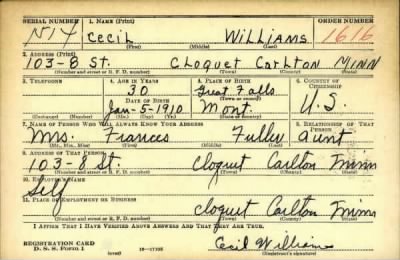 SERIAL NUMBER 1. NAME (Print) ORDER NUMBER
N14 CECIL WILLIAMS 1616
(First) (Middle) (Last)
2. ADDRESS (Print)
103-8 St. Cloquet Carlton MINN
(Number and street or R. F. D. number) (Town) (County) (State)
3. TELEPHONE 4. AGE IN YEARS 5. PLACE OF BIRTH 6. COUNTRY OF CITIZENSHIP
30 Great Falls
(Town or county)
DATE OF BIRTH
Jan-5-1910 Mont. U.S.
(Exchange) (Number) (Mo.) (Day) (Yr.) (State or country)
7. NAME OF PERSON WHO WILL ALWAYS KNOW YOUR ADDRESS 8. RELATIONSHIP OF THAT PERSON
Mrs. Frances aunt
(Mr., Mrs., Miss) (First) (Middle) (Last)
9. ADDRESS OF THAT PERSON
103-8 St. Cloquet Carlton Minn
(Number and street or R. F. D. number) (Town) (County) (State)
10. EMPLOYER'S NAME
Self
11. PLACE OF EMPLOYMENT OR BUSINESS
Cloquet Carlton Minn
(Number and street or R. F. D. number) (Town) (County) (State)
I AFFIRM THAT I HAVE VERIFIED ABOVE ANSWERS AND THAT THEY ARE TRUE.
REGISTRATION CARD
D. S. S. FORM 1 (over) 16-17105 Cecil Williams
(Registrant's signature)